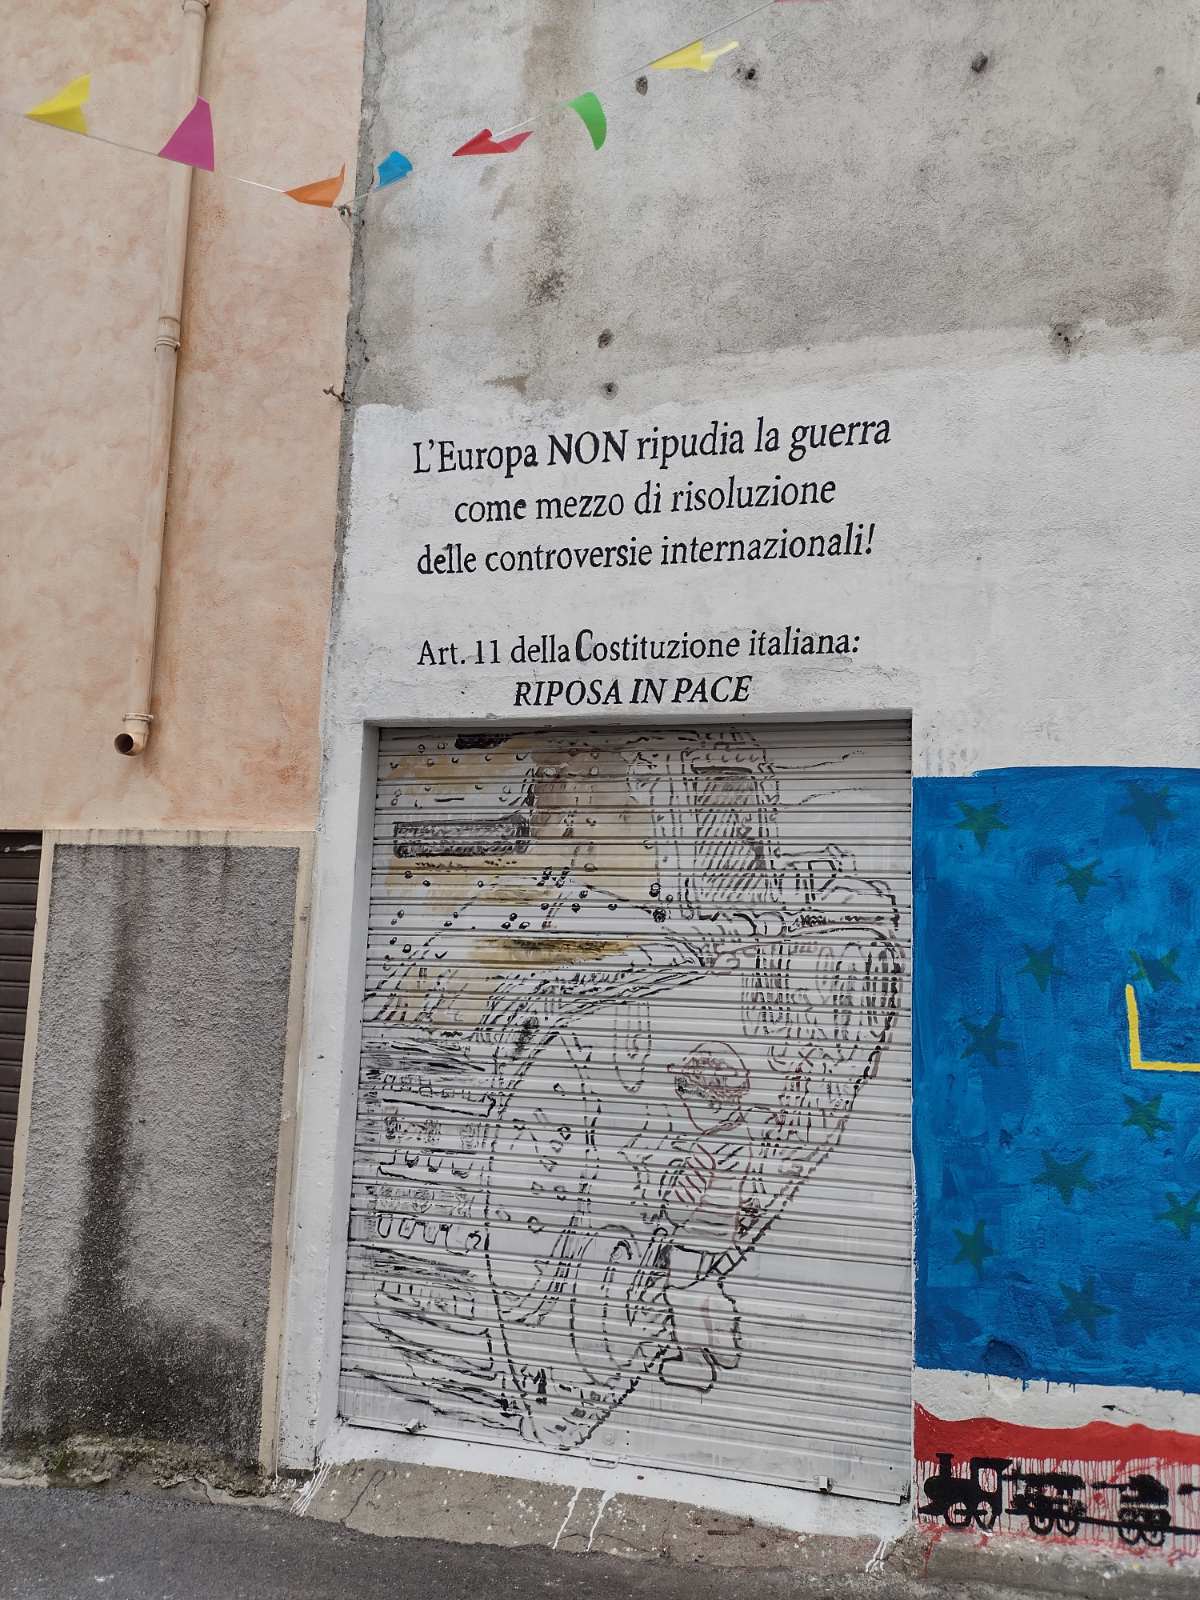 L'Europa NON ripudia la guerra
come mezzo di risoluzione
delle controversie internazionali!
Art. 11 della Costituzione italiana:
RIPOSA IN PACE